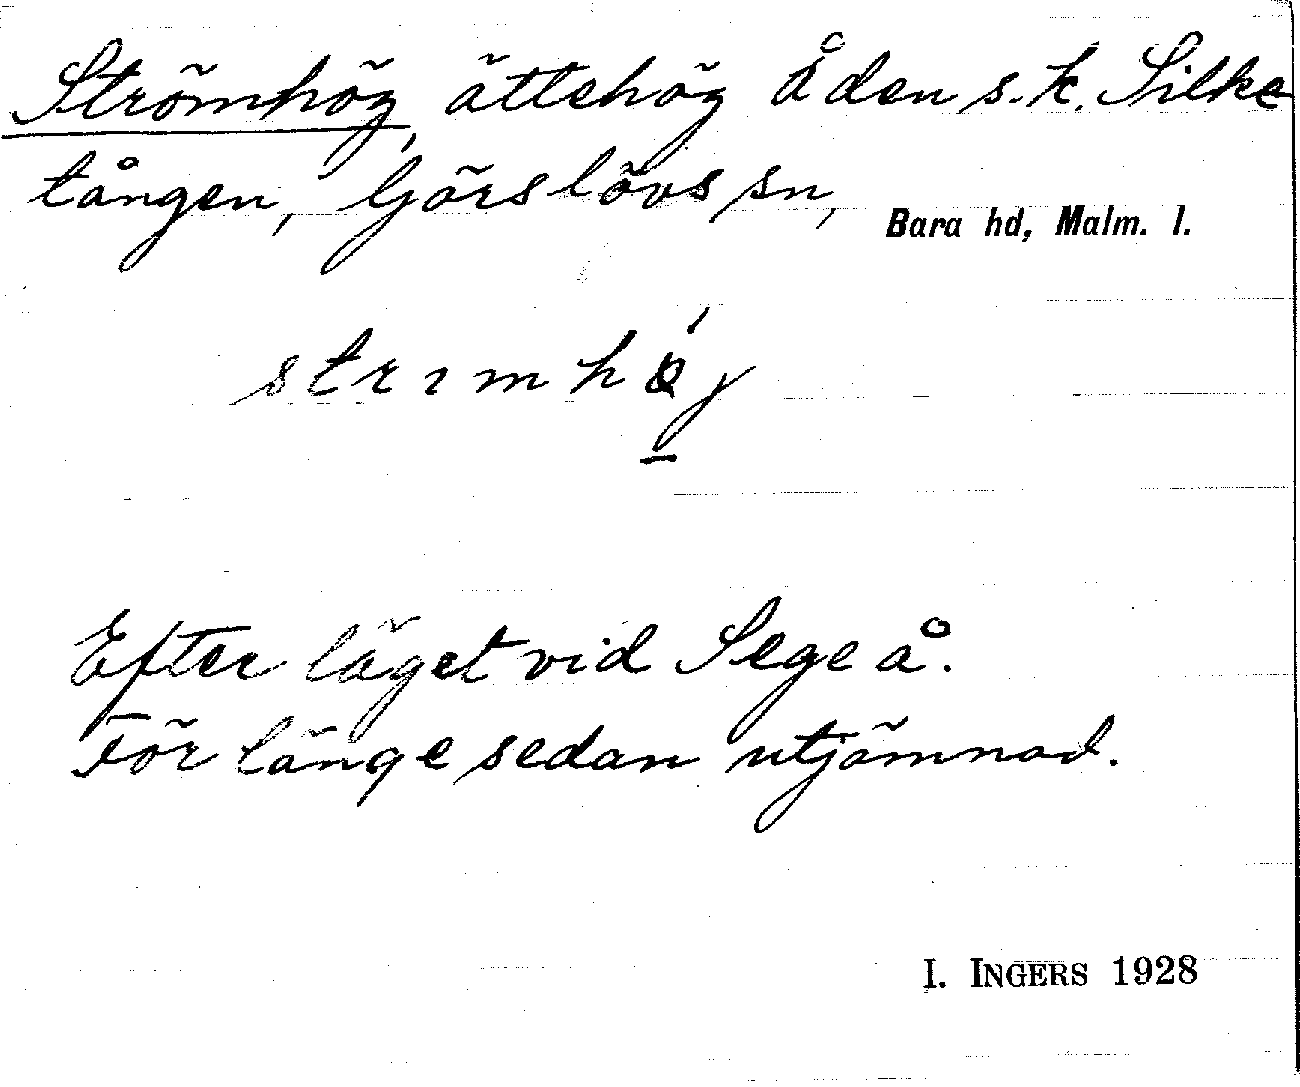 Strömhög, ättehög å den s.k. Silke
tången, Görslövs sn, Bara hd, Malm. l.
Efter läget vid Sege å.
För länge sedan utjämnad.
I. INGERS 1928